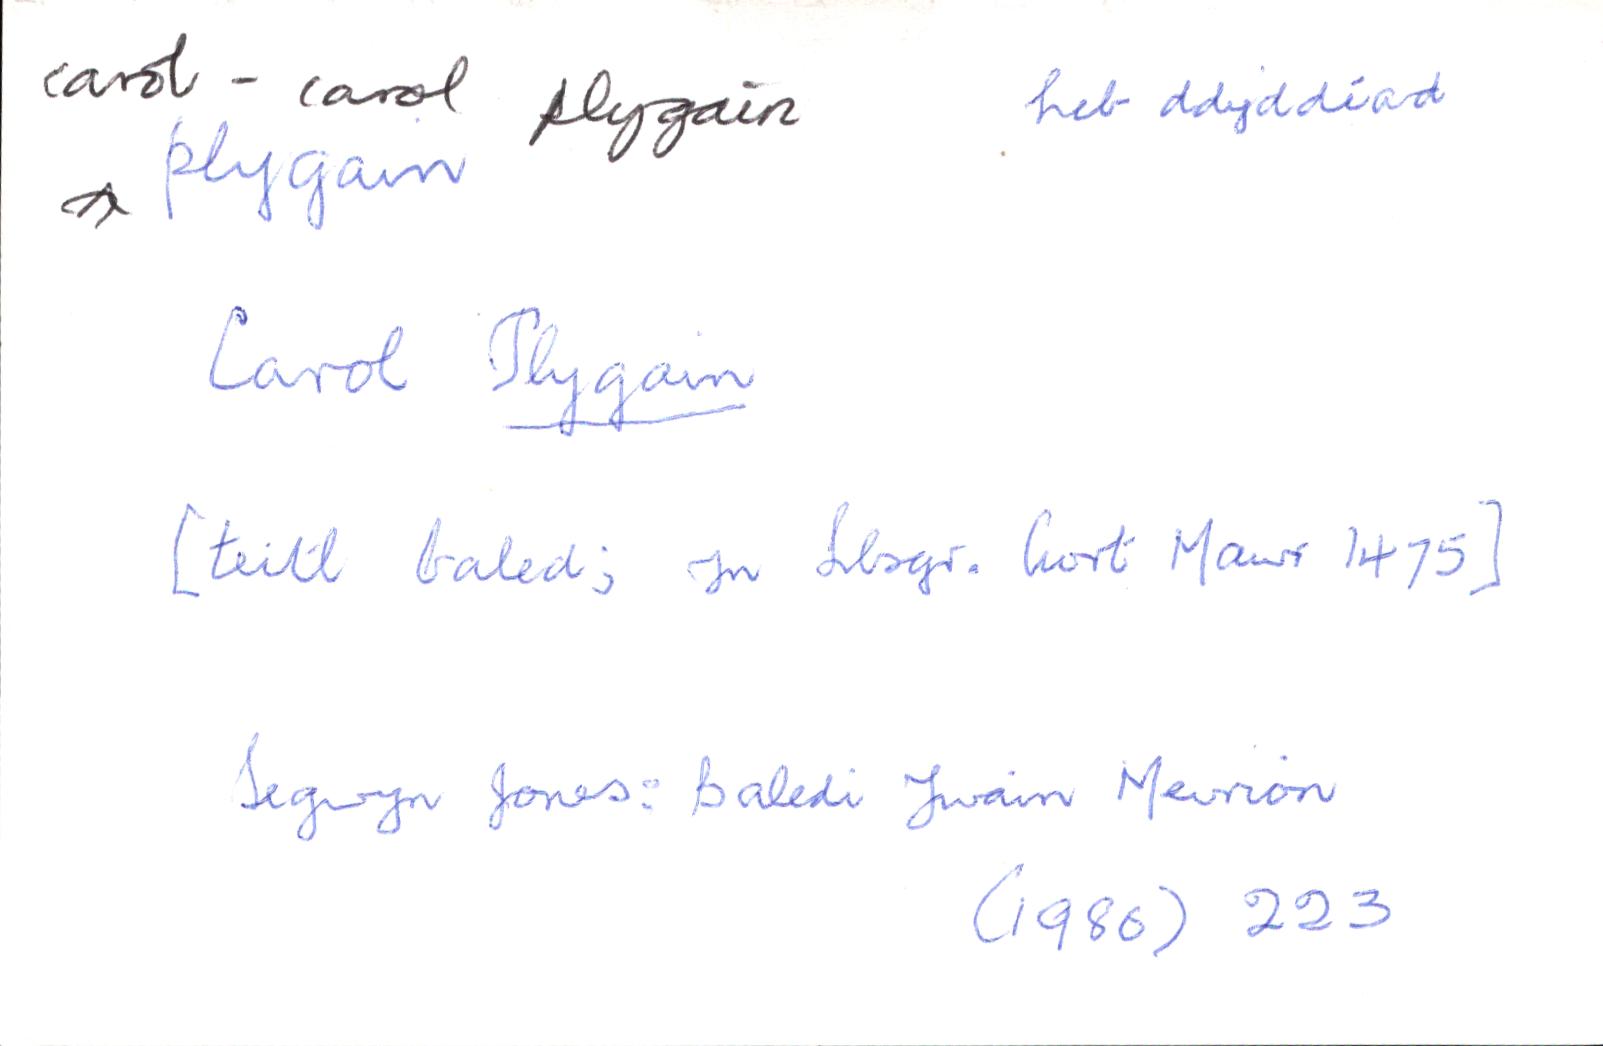 carol - carol plygain heb ddyddiad
plygain
Carol Plygain
[teitl baled; yn Llsgr. Cwrt Mawr 1475]
Tegwyn Jones: Baledi Ywain Meirion
(1980) 223